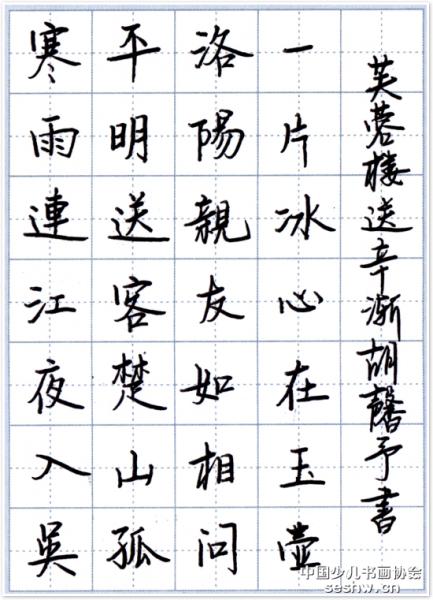 寒雨連江夜入吳
平明送客楚山孤
洛陽親友如相问
一片冰心在玉壺
芙蓉楼送辛渐胡馨予書
中国少儿书画协会
seshw.cn